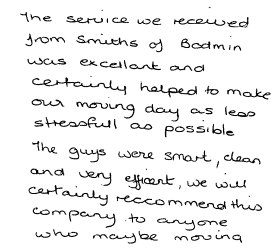 The service we received
from Smiths of Bodmin
was excellant and
certainly helped to make
our moving day as less
stressfull as possible
The guys were smart, clean
and very efficent, we will
certainly reccommend this
company to anyone
who maybe moving